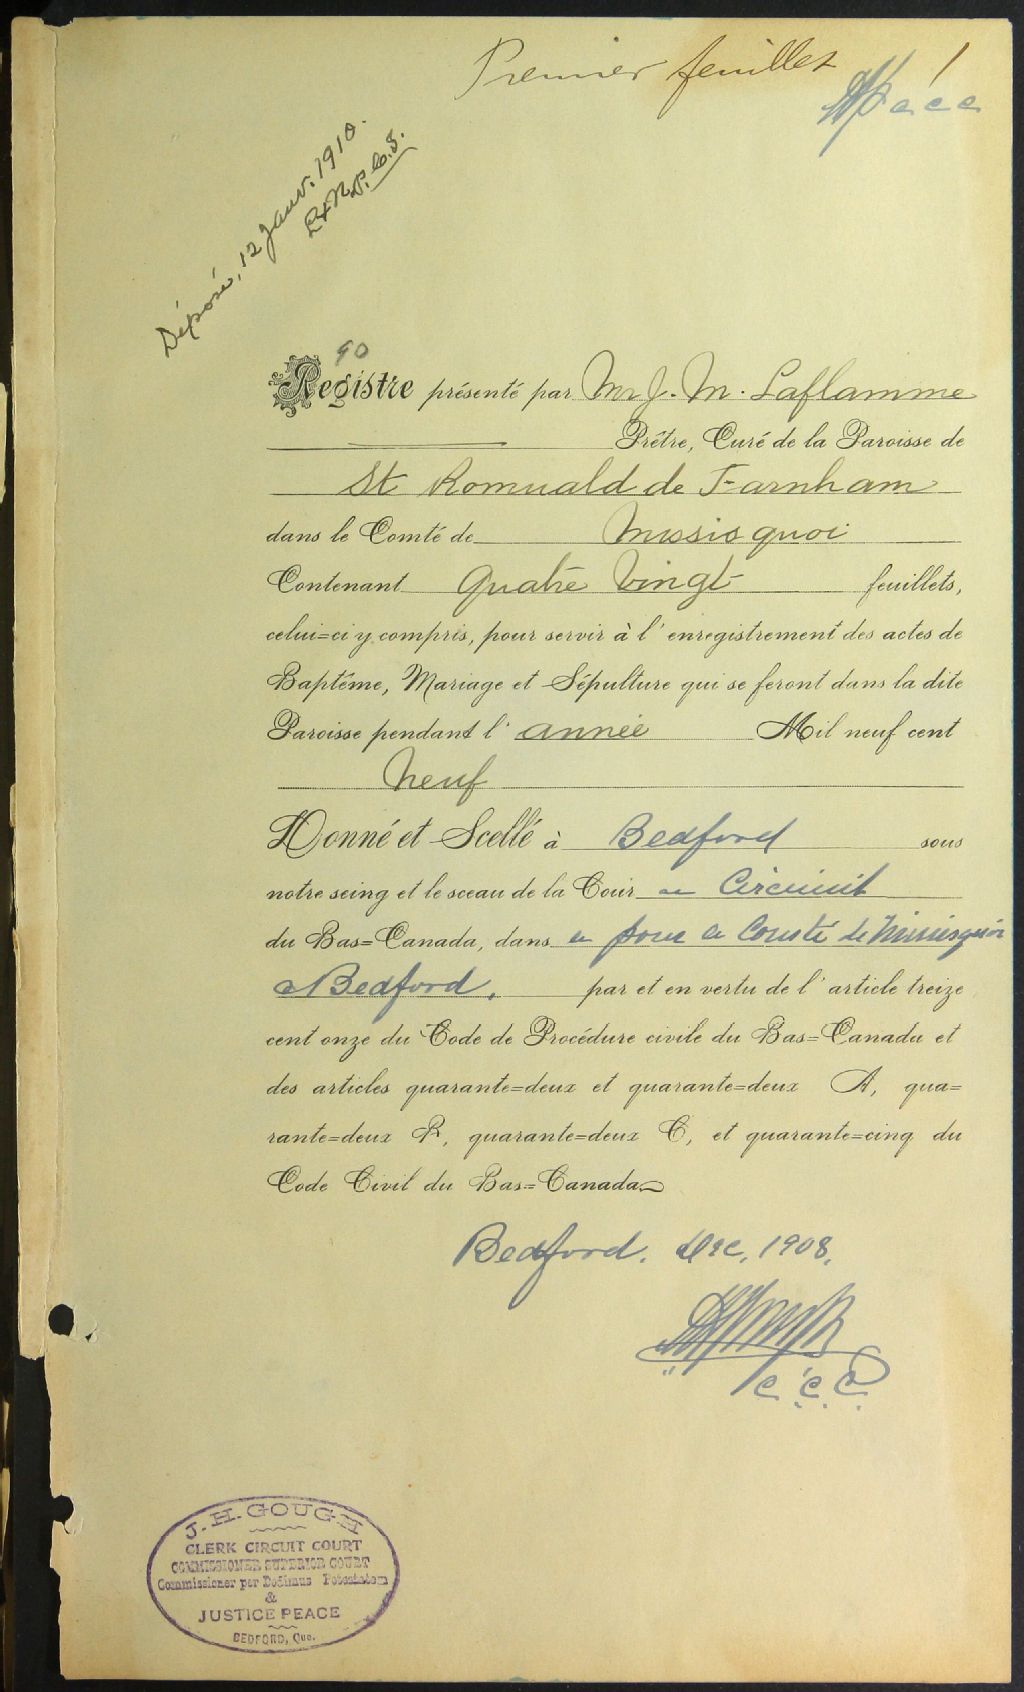 Premier feuillet 1
Déposé, 12 Janv. 1910.
P.C.S.
90
Registre présenté par Mr J. M. Laflamme
Prêtre, Curé de la Paroisse de
St Romuald de Farnham
dans le Comté de Missisquoi
Contenant Quatre Vingt feuillets,
celui=ci y compris, pour servir à l'enregistrement des actes de
Baptême, Mariage et Sépulture qui se feront dans la dite
Paroisse pendant l'année Mil neuf cent
Neuf
Donné et Scellé à Bedford sous
notre seing et le sceau de la Cour de Circuit
du Bas=Canada, dans et pour le Comté de Missisquoi
à Bedford, par et en vertu de l'article treize
cent onze du Code de Procédure civile du Bas=Canada et
des articles quarante=deux et quarante=deux A, qua=
rante=deux B, quarante=deux C, et quarante=cinq du
Code Civil du Bas=Canada
Bedford. Dec. 1908.
C.C.C.
J. H. GOUGH
CLERK CIRCUIT COURT
COMMISSIONER SUPERIOR COURT
Commissioner per Dedimus Potestatem
&
JUSTICE PEACE
BEDFORD, Que.